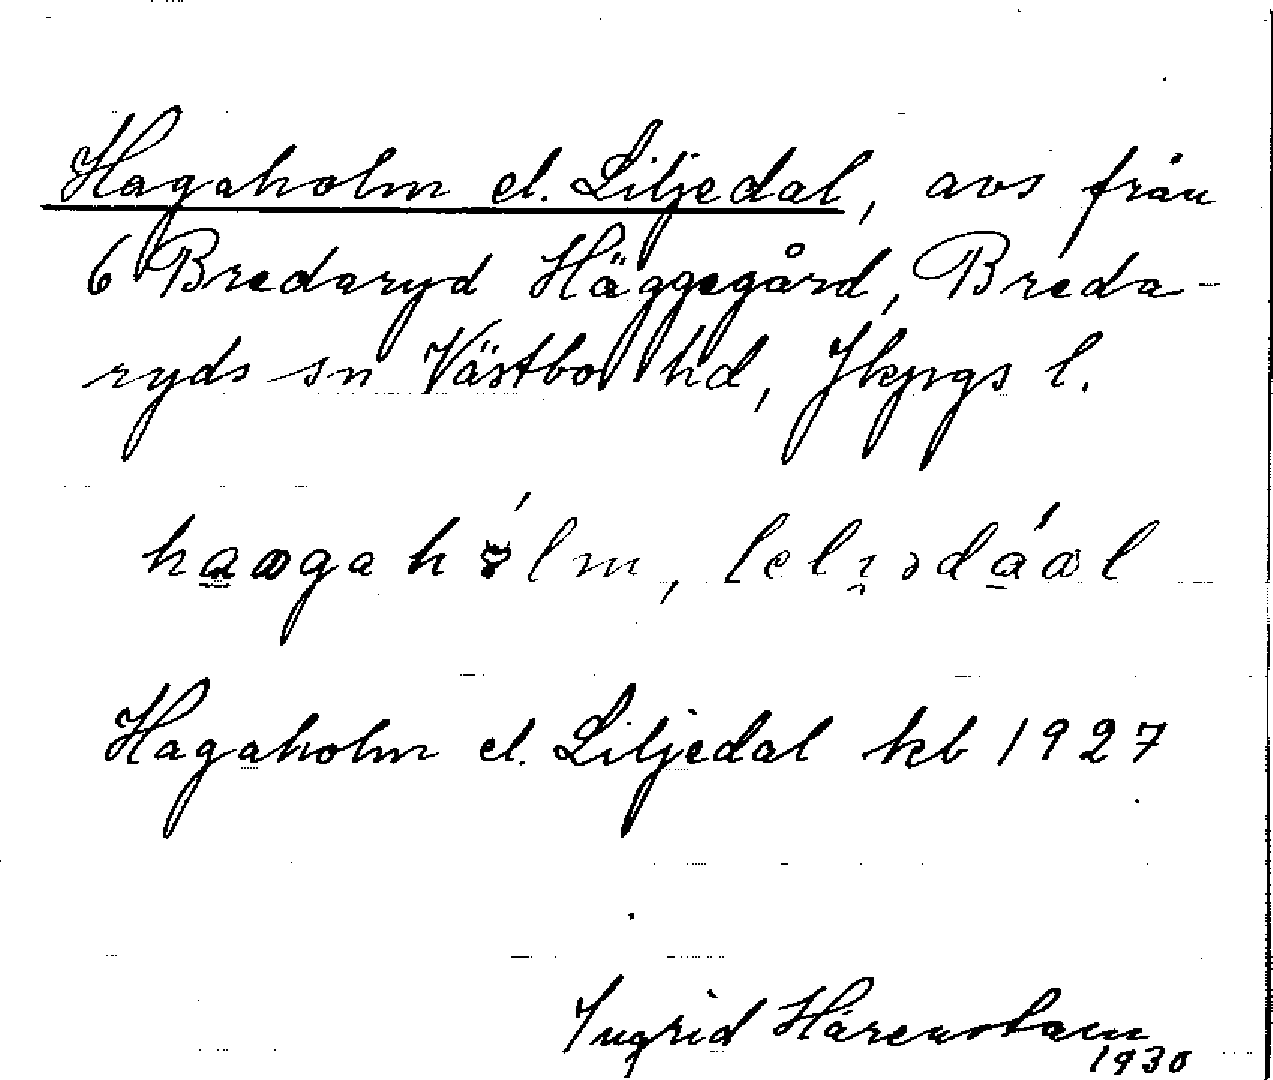 Hagaholm el. Liljedal, avs från
6 Bredaryd Häggegård, Breda-
ryds sn Västbo hd, Jkpgs l.
Hagaholm el. Liljedal kb 1927
Ingrid Hårenstam
1930